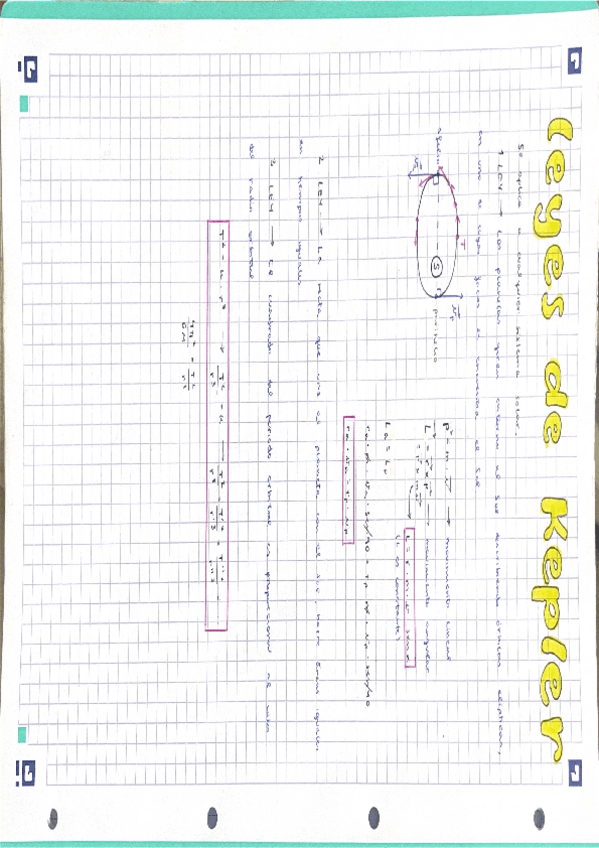 Leyes de Kepler
Se aplica a cualquier sistema solar.
1 LEY → Los planetas giran entorno al Sol describiendo órbitas elípticas,
en uno de cuyos focos se encuentra el Sol
p⃗ = m · v⃗ → movimiento lineal
L⃗ = r⃗ x p⃗ → movimiento angular
= r⃗ x m v⃗
L = r · m · v · senα
(L es constante)
S
T
perihelio
La = Lp
ra · m · va · sen 90 = rp · m · vp · sen 90
ra · va = rp · vp
2 LEY → La recta que une el planeta con el Sol, barre áreas iguales
en tiempos iguales
3 LEY → El cuadrado del periodo orbital es proporcional al cubo
del radio orbital
T² = k · r³ → T²/r³ = k → T²/r³ = T'²/r'³ = T''²/r''³ = ...
4π²/GM = T²/r³